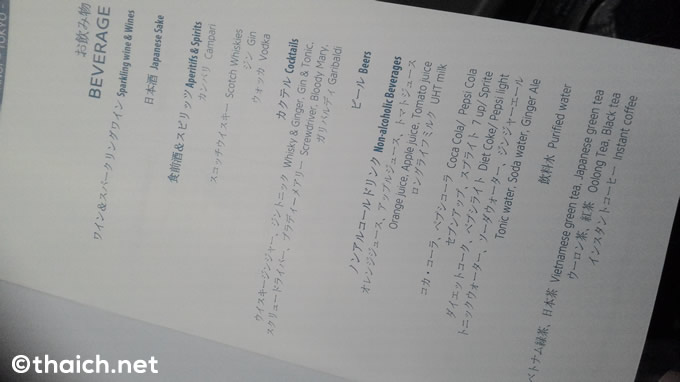 TOKYO -
お飲み物
BEVERAGE
ワイン&スパークリングワイン Sparkling wine & Wines
日本酒 Japanese Sake
食前酒&スピリッツ Aperitifs & Spirits
カンパリ Campari
スコッチウイスキー Scotch Whiskies
ジン Gin
ウォッカ Vodka
カクテル Cocktails
ウイスキージンジャー、ジントニック Whisky & Ginger, Gin & Tonic,
スクリュードライバー、ブラディーメアリー Screwdriver, Bloody Mary,
ガリバルディ Garibaldi
ビール Beers
ノンアルコールドリンク Non-alcoholic Beverages
オレンジジュース、アップルジュース、トマトジュース
Orange juice, Apple juice, Tomato juice
ロングライフミルク UHT milk
コカ・コーラ、ペプシコーラ Coca Cola/ Pepsi Cola
セブンアップ、スプライト 7 up/ Sprite
ダイエットコーク、ペプシライト Diet Coke/ Pepsi light
トニックウォーター、ソーダウォーター、ジンジャーエール
Tonic water, Soda water, Ginger Ale
飲料水 Purified water
ベトナム緑茶、日本茶 Vietnamese green tea, Japanese green tea
ウーロン茶、紅茶 Oolong Tea, Black tea
インスタントコーヒー Instant coffee
©thaich.net